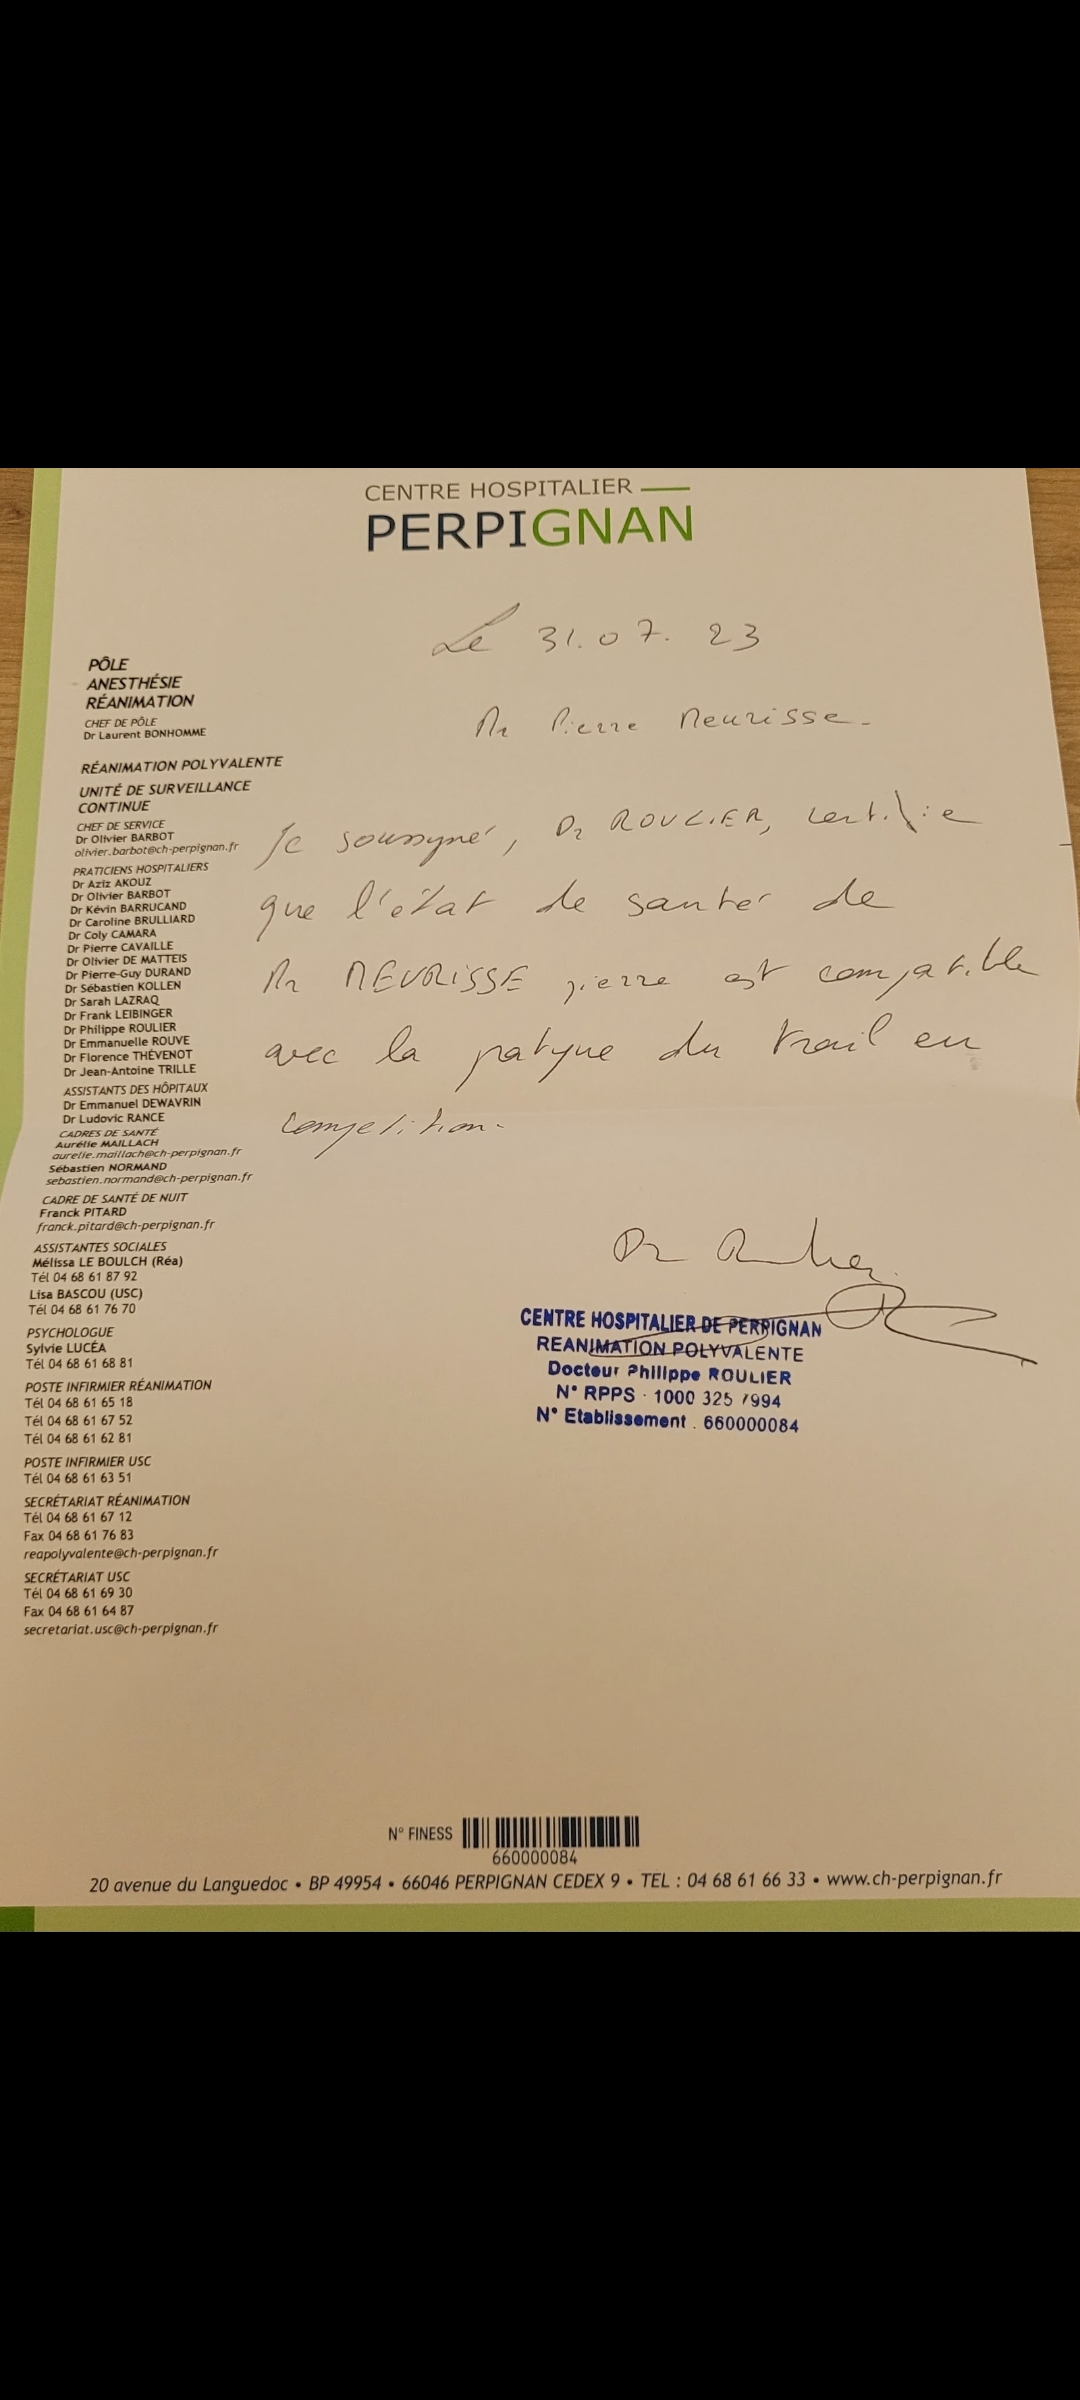 CENTRE HOSPITALIER
PERPIGNAN
Le 31.07.23
Mr Pierre Neurisse.
PÔLE
ANESTHÉSIE
RÉANIMATION
CHEF DE PÔLE
Dr Laurent BONHOMME
RÉANIMATION POLYVALENTE
UNITÉ DE SURVEILLANCE
CONTINUE
CHEF DE SERVICE
Dr Olivier BARBOT
olivier.barbot@ch-perpignan.fr
PRATICIENS HOSPITALIERS
Dr Aziz AKOUZ
Dr Olivier BARBOT
Dr Kévin BARRUCAND
Dr Caroline BRULLIARD
Dr Coly CAMARA
Dr Pierre CAVAILLE
Dr Olivier DE MATTEIS
Dr Pierre-Guy DURAND
Dr Sébastien KOLLEN
Dr Sarah LAZRAQ
Dr Frank LEIBINGER
Dr Philippe ROULIER
Dr Emmanuelle ROUVE
Dr Florence THÉVENOT
Dr Jean-Antoine TRILLE
ASSISTANTS DES HÔPITAUX
Dr Emmanuel DEWAVRIN
Dr Ludovic RANCE
CADRES DE SANTÉ
Aurélie MAILLACH
aurelie.maillach@ch-perpignan.fr
Sébastien NORMAND
sebastien.normand@ch-perpignan.fr
CADRE DE SANTÉ DE NUIT
Franck PITARD
franck.pitard@ch-perpignan.fr
ASSISTANTES SOCIALES
Mélissa LE BOULCH (Réa)
Tél 04 68 61 87 92
Lisa BASCOU (USC)
Tél 04 68 61 76 70
PSYCHOLOGUE
Sylvie LUCÉA
Tél 04 68 61 68 81
POSTE INFIRMIER RÉANIMATION
Tél 04 68 61 65 18
Tél 04 68 61 67 52
Tél 04 68 61 62 81
POSTE INFIRMIER USC
Tél 04 68 61 63 51
SECRÉTARIAT RÉANIMATION
Tél 04 68 61 67 12
Fax 04 68 61 76 83
reapolyvalente@ch-perpignan.fr
SECRÉTARIAT USC
Tél 04 68 61 69 30
Fax 04 68 61 64 87
secretariat.usc@ch-perpignan.fr
Je soussigné, Dr ROULIER, certifie
que l'état de santé de
Mr NEURISSE pierre est compatible
avec la patique du trail en
competition.
Dr Roulier
CENTRE HOSPITALIER DE PERPIGNAN
REANIMATION POLYVALENTE
Docteur Philippe ROULIER
N° RPPS · 1000 325 7994
N° Etablissement . 660000084
N° FINESS
660000084
20 avenue du Languedoc • BP 49954 • 66046 PERPIGNAN CEDEX 9 • TEL : 04 68 61 66 33 • www.ch-perpignan.fr